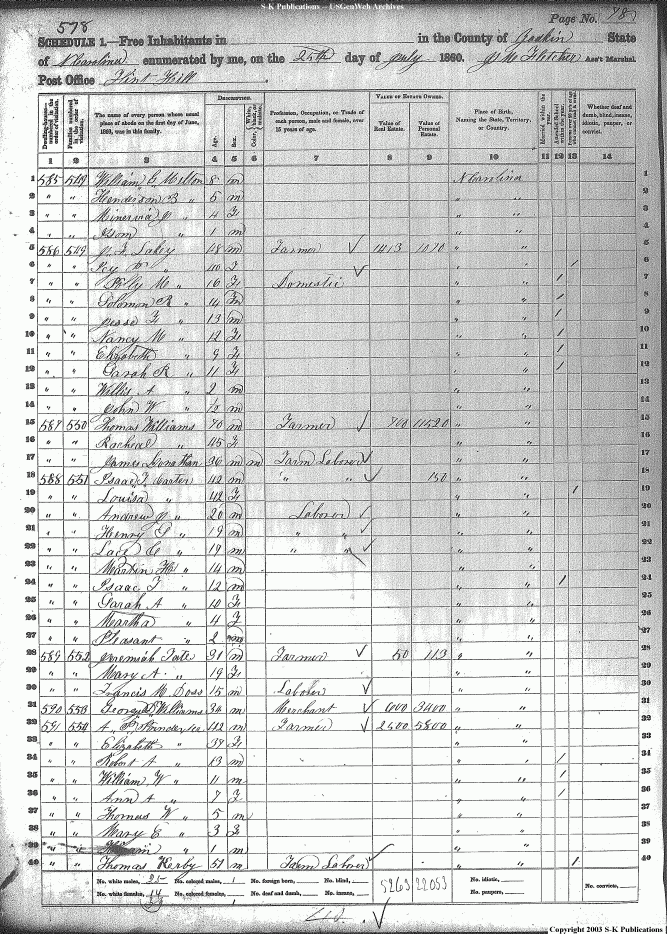 S-K Publications -- USGenWeb Archives
578
Page No. 78
SCHEDULE 1.—Free Inhabitants in in the County of Yadkin State
of N Carolina enumerated by me, on the 25th day of July 1860. Fletcher Ass't Marshal
Post Office Flint Hill
Dwelling-houses—numbered in the order of visitation.
Families numbered in the order of visitation.
The name of every person whose usual place of abode on the first day of June, 1860, was in this family.
DESCRIPTION.
Age. Sex. Color,
Profession, Occupation, or Trade of each person, male and female, over 15 years of age.
VALUE OF ESTATE OWNED.
Value of Real Estate. Value of Personal Estate.
Place of Birth, Naming the State, Territory, or Country.
Married within the year.
Attended School within the year.
Whether deaf and dumb, blind, insane, idiotic, pauper, or convict.
1 2 3 4 5 6 7 8 9 10 11 12 13 14
1 585 548 William C Melton 8 m N Carolina 1
2 " " Henderson B " 5 m " " 2
3 " " Minerva " 4 F " " 3
4 " " Isom " 1 m " " 4
5 586 549 Lakey 48 m Farmer 1413 1070 " " 5
6 " " " 40 F " " 1 6
7 " " Polly M " 16 F Domestic " " 1 7
8 " " Solomon R " 14 m " " 1 8
9 " " Jesse F " 13 m " " 1 9
10 " " Nancy M " 12 F " " 1 10
11 " " Elizabeth " 9 F " " 1 11
12 " " Sarah R " 11 F " " 1 12
13 " " Willis A " 2 m " " 13
14 " " John W " m " " 14
15 587 550 Thomas Williams 70 m Farmer 11520 " " 15
16 " " Racheal " 45 F " " 16
17 " " James Jonathan 36 m m Farm Laborer " " 17
18 588 551 Isaac T. Carter 42 m " " 150 " " 18
19 " " Louisa " 42 F " " 1 19
20 " " Andrew J " 20 m Laborer " " 20
21 " " Henry " 19 m " " " " 21
22 " " C " 19 m " " " " 22
23 " " Martin H " 14 m " " 23
24 " " Isaac T " 12 m " " 1 24
25 " " Sarah A " 10 F " " 25
26 " " Martha " 4 F " " 26
27 " " Pleasant " 2 m " " 27
28 589 552 Jeremiah Tate 31 m Farmer 50 113 " " 28
29 " " Mary A " 19 F " " 29
30 " " Francis M. Doss 15 m Laborer " " 30
31 590 553 George D Williams 34 m Merchant 600 3400 " " 31
32 591 554 A. 42 m Farmer 2500 5800 " " 32
33 " " Elizabeth " 39 F " " 33
34 " " Robert A " 13 m " " 1 34
35 " " William W " 11 m " " 1 35
36 " " Ann A " 7 F " " 1 36
37 " " Thomas W " 5 m " " 37
38 " " Mary E " 3 F " " 38
39 " " " 1 m " " 39
40 " " Thomas Kerby 51 m Farm Laborer " " 1 40
No. white males, 25 No. colored males, 1 No. foreign born, No. blind, 5263 22053 No. idiotic, No. convicts,
No. white females, 14 No. colored females, No. deaf and dumb, No. insane, No. paupers,
Copyright 2003 S-K Publications